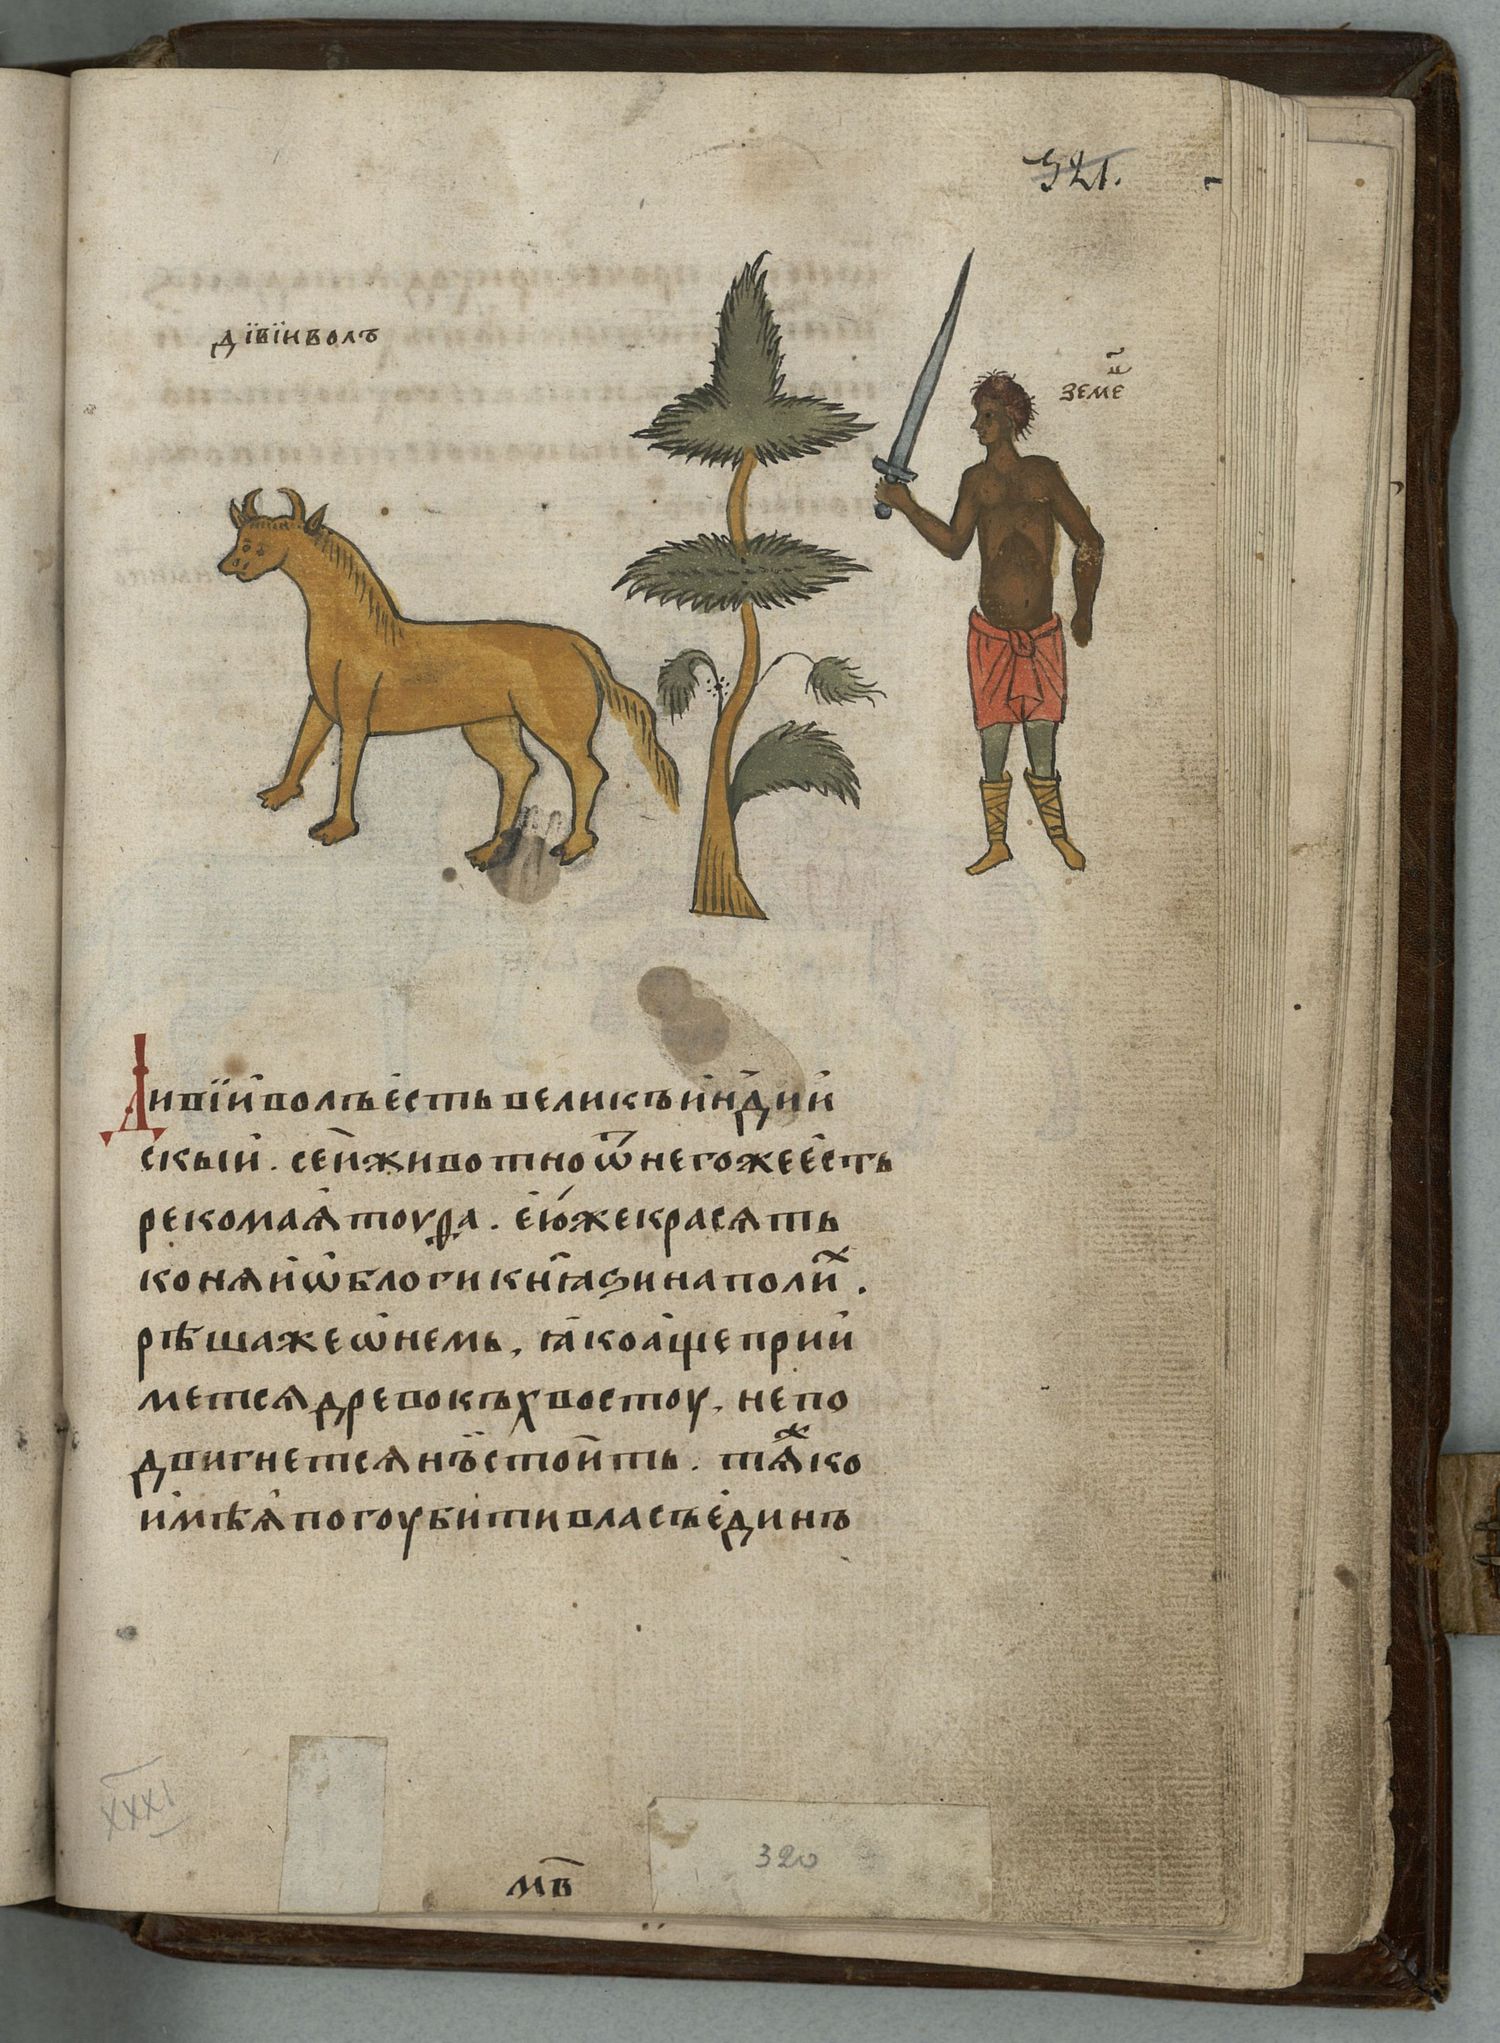 321.
дївїи волъ
земе҇ц
Дивїи́ волъ е́сть великъ и҆ндїи́
скыи́. сеи́ животно ѿ него же е҆сть
рекомаѧ҆ тоуѳа. е҆ю́ же красѧть
конѧ и҆ ѡ҆блоги кнѧ҃ѕи на поли́х.
рѣша же ѡ҆ немь, ꙗ҆ко а҆ще прїи
метсѧ древо къ хвостоу, не по
двигнетсѧ нъ̏ стои́ть. тѧⷤко
и҆мѣѧ҆ погоубити власъ е҆динъ
XXXI
320
м҃в